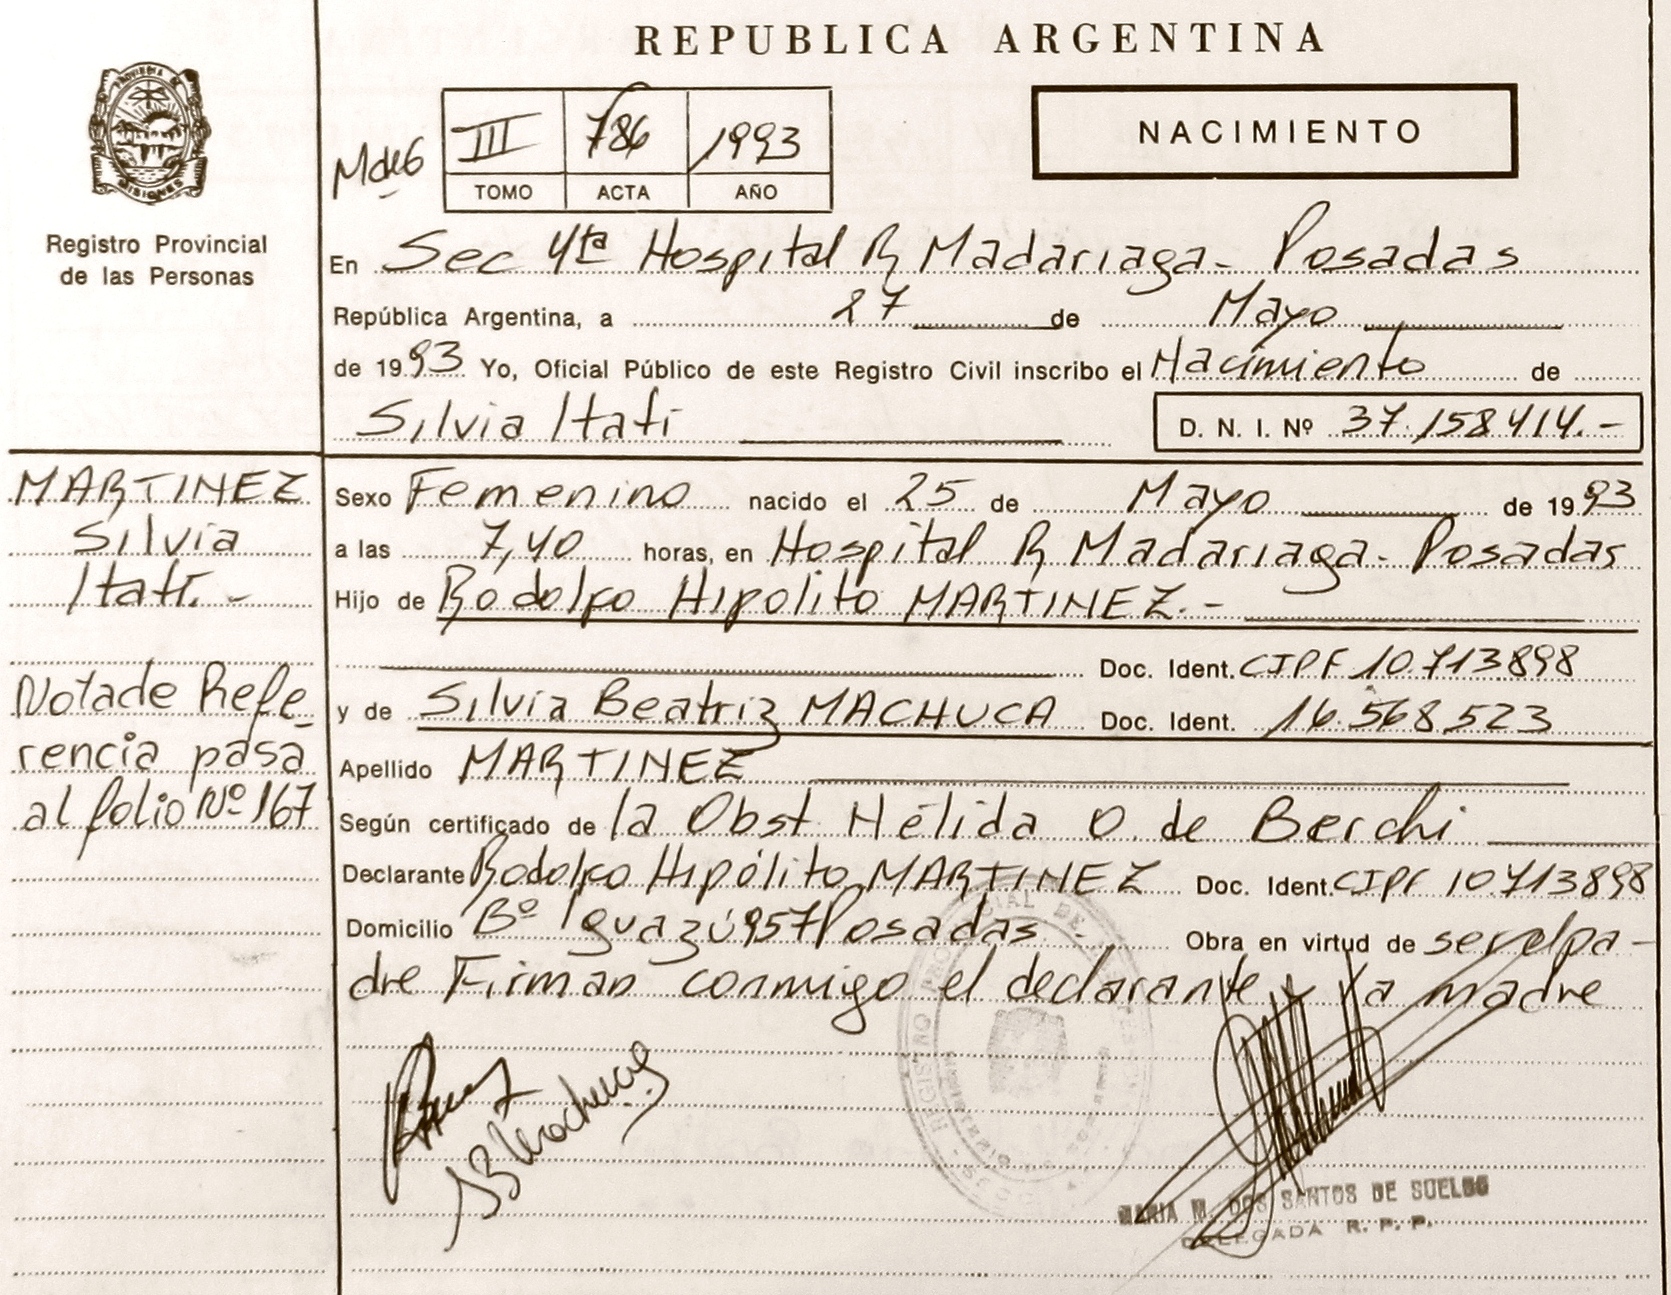 REPUBLICA ARGENTINA
PROVINCIA DE
MISIONES
Registro Provincial
de las Personas
III 786 1993
TOMO ACTA AÑO
NACIMIENTO
En Sec 4ta Hospital R Madariaga - Posadas
República Argentina, a 27 de Mayo
de 1993 Yo, Oficial Público de este Registro Civil inscribo el Nacimiento de
Silvia Itatí
D. N. I. Nº 37.158414.-
MARTINEZ
Silvia
Itatí.-
Sexo Femenino nacido el 25 de Mayo de 1993
a las 7,40 horas, en Hospital R Madariaga - Posadas
Hijo de Rodolfo Hipolito MARTINEZ.-
Doc. Ident. CIPF 10.713898
y de Silvia Beatriz MACHUCA Doc. Ident. 16.568.523
Nota de Refe-
rencia pasa
al folio Nº 167
Apellido MARTINEZ
Según certificado de la Obst Nélida O. de Berchi
Declarante Rodolfo Hipólito MARTINEZ Doc. Ident. CIPF 10713898
Domicilio Bº Iguazú 957 Posadas Obra en virtud de ser el pa-
dre Firman conmigo el declarante y la madre
MARIA M. DOS SANTOS DE SUELDO
DELEGADA R. P. P.